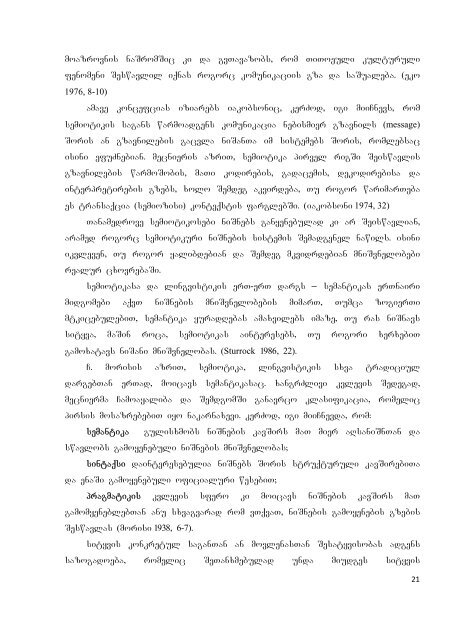 მოაზროვნის ნაშრომშიც კი და გვთავაზობს, რომ თითოეული კულტურული
ფენომენი შესწავლილ იქნას როგორც კომუნიკაციის გზა და საშუალება. (ეკო
1976, 8-10)
ამავე კონცეფციას იზიარებს იაკობსონიც, კერძოდ, იგი მიიჩნევს, რომ
სემიოტიკის საგანს წარმოადგენს კომუნიკაცია ნებისმიერ გზავნილს (message)
შორის ან გზავნილების გაცვლა ნიშანთა იმ სისტემებს შორის, რომლებსაც
ისინი ეფუძნებიან. მეცნიერის აზრით, სემიოტიკა პირველ რიგში შეისწავლის
გზავნილების წარმოშობის, მათი კოდირების, გადაცემის, დეკოდირებისა და
ინტერპრეტირების გზებს, ხოლო შემდეგ აკვირდება, თუ როგორ წარიმართება
ეს ტრანსაქცია (სემიოზისი) კონტექსტის ფარგლებში. (იაკობსონი 1974, 32)
თანამედროვე სემიოტიკოსები ნიშნებს განყენებულად კი არ შეისწავლიან,
არამედ როგორც სემიოტიკური ნიშნების სისტემის შემადგენელ ნაწილს. ისინი
იკვლევენ, თუ როგორ ყალიბდებიან და შემდეგ მკვიდრდებიან მნიშვნელობები
რეალურ ცხოვრებაში.
სემიოტიკასა და ლინგვისტიკის ერთ-ერთ დარგს – სემანტიკას ერთნაირი
მიდგომები აქვთ ნიშნების მნიშვნელობების მიმართ, თუმცა ზოგიერთი
მტკიცებულებით, სემანტიკა ყურადღებას ამახვილებს იმაზე, თუ რას ნიშნავს
სიტყვა, მაშინ როცა, სემიოტიკას აინტერესებს, თუ როგორი ხერხებით
გამოხატავს ნიშანი მნიშვნელობას. (Sturrock 1986, 22).
ჩ. მორისის აზრით, სემიოტიკა, ლინგვისტიკის სხვა ტრადიციულ
დარგებთან ერთად, მოიცავს სემანტიკასაც. ხანგრძლივი კვლევის შედეგად,
მეცნიერმა ჩამოაყალიბა და შემდგომში განავრცო კლასიფიკაცია, რომელიც
პირსის მოსაზრებებით იყო ნაკარნახევი. კერძოდ, იგი მიიჩნევდა, რომ:
სემანტიკა გულისხმობს ნიშნების კავშირს მათ მიერ აღსანიშნთან და
სწავლობს გამოყენებული ნიშნების მნიშვნელობას;
სინტაქსი დაინტერესებულია ნიშნებს შორის სტრუქტურული კავშირებითა
და ენაში გამოყენებული ოფიციალური წესებით;
პრაგმატიკის კვლევის სფერო კი მოიცავს ნიშნების კავშირს მათ
გამომყენებლებთან ანუ სხვაგვარად რომ ვთქვათ, ნიშნების გამოყენების გზების
შესწავლას (მორისი 1938, 6-7).
სიტყვის კონკრეტულ საგანთან ან მოვლენასთან შესატყვისობას ადგენს
საზოგადოება, რომელიც შეთანხმებულად უნდა მიუდგეს სიტყვის
21